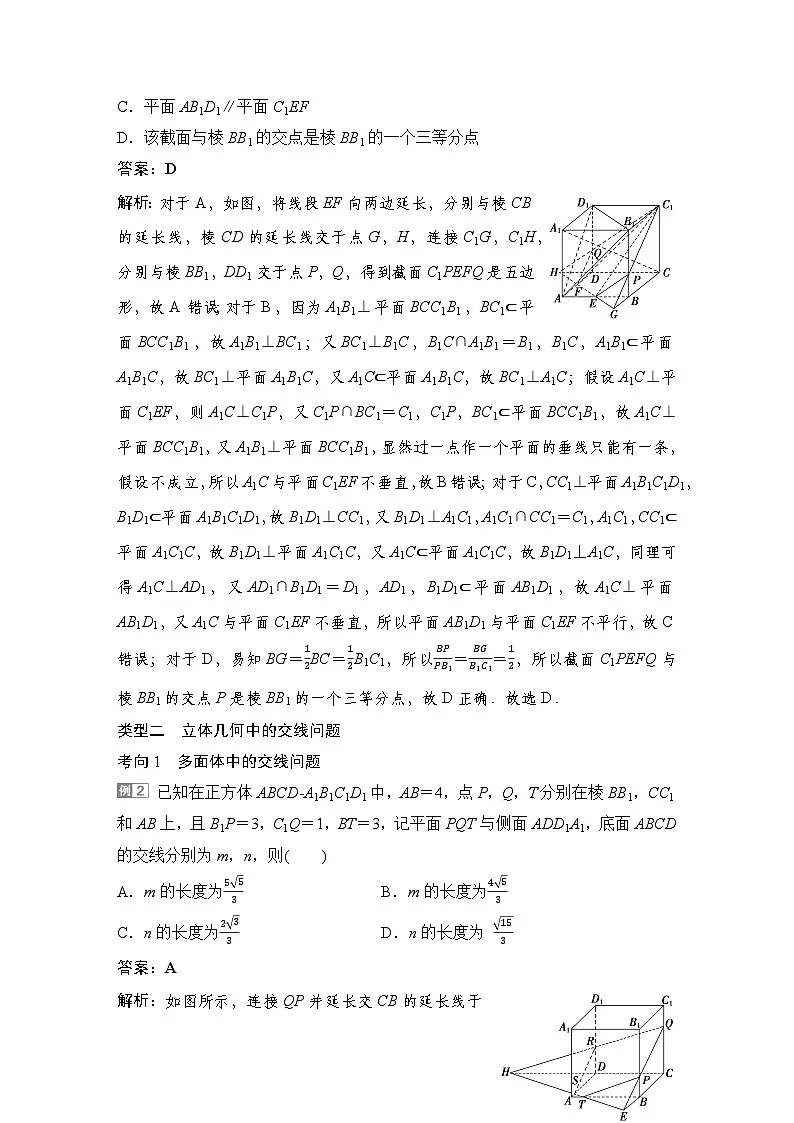 C．平面AB₁D₁∥平面C₁EF
D．该截面与棱BB₁的交点是棱BB₁的一个三等分点
答案：D
解析：对于A，如图，将线段EF向两边延长，分别与棱CB
的延长线，棱CD的延长线交于点G，H，连接C₁G，C₁H，
分别与棱BB₁，DD₁交于点P，Q，得到截面C₁PEFQ是五边
形，故A错误；对于B，因为A₁B₁⊥平面BCC₁B₁，BC₁⊂平
面BCC₁B₁，故A₁B₁⊥BC₁；又BC₁⊥B₁C，B₁C∩A₁B₁＝B₁，B₁C，A₁B₁⊂平面
A₁B₁C，故BC₁⊥平面A₁B₁C，又A₁C⊂平面A₁B₁C，故BC₁⊥A₁C；假设A₁C⊥平
面C₁EF，则A₁C⊥C₁P，又C₁P∩BC₁＝C₁，C₁P，BC₁⊂平面BCC₁B₁，故A₁C⊥
平面BCC₁B₁，又A₁B₁⊥平面BCC₁B₁，显然过一点作一个平面的垂线只能有一条，
假设不成立，所以A₁C与平面C₁EF不垂直，故B错误；对于C，CC₁⊥平面A₁B₁C₁D₁，
B₁D₁⊂平面A₁B₁C₁D₁，故B₁D₁⊥CC₁，又B₁D₁⊥A₁C₁，A₁C₁∩CC₁＝C₁，A₁C₁，CC₁⊂
平面A₁C₁C，故B₁D₁⊥平面A₁C₁C，又A₁C⊂平面A₁C₁C，故B₁D₁⊥A₁C，同理可
得A₁C⊥AD₁，又AD₁∩B₁D₁＝D₁，AD₁，B₁D₁⊂平面AB₁D₁，故A₁C⊥平面
AB₁D₁，又A₁C与平面C₁EF不垂直，所以平面AB₁D₁与平面C₁EF不平行，故C
错误；对于D，易知BG＝1/2BC＝1/2B₁C₁，所以BP/PB₁＝BG/B₁C₁＝1/2，所以截面C₁PEFQ与
棱BB₁的交点P是棱BB₁的一个三等分点，故D正确．故选D．
D₁ C₁
A₁ B₁
Q
H D P C
A F E B
G
类型二　立体几何中的交线问题
考向1　多面体中的交线问题
例2 已知在正方体ABCD-A₁B₁C₁D₁中，AB＝4，点P，Q，T分别在棱BB₁，CC₁
和AB上，且B₁P＝3，C₁Q＝1，BT＝3，记平面PQT与侧面ADD₁A₁，底面ABCD
的交线分别为m，n，则(　　)
A．m的长度为5√5/3　　B．m的长度为4√5/3
C．n的长度为2√3/3　　D．n的长度为 √15/3
答案：A
解析：如图所示，连接QP并延长交CB的延长线于
D₁ C₁
A₁ B₁ Q
R
H S D P C
A T B
E